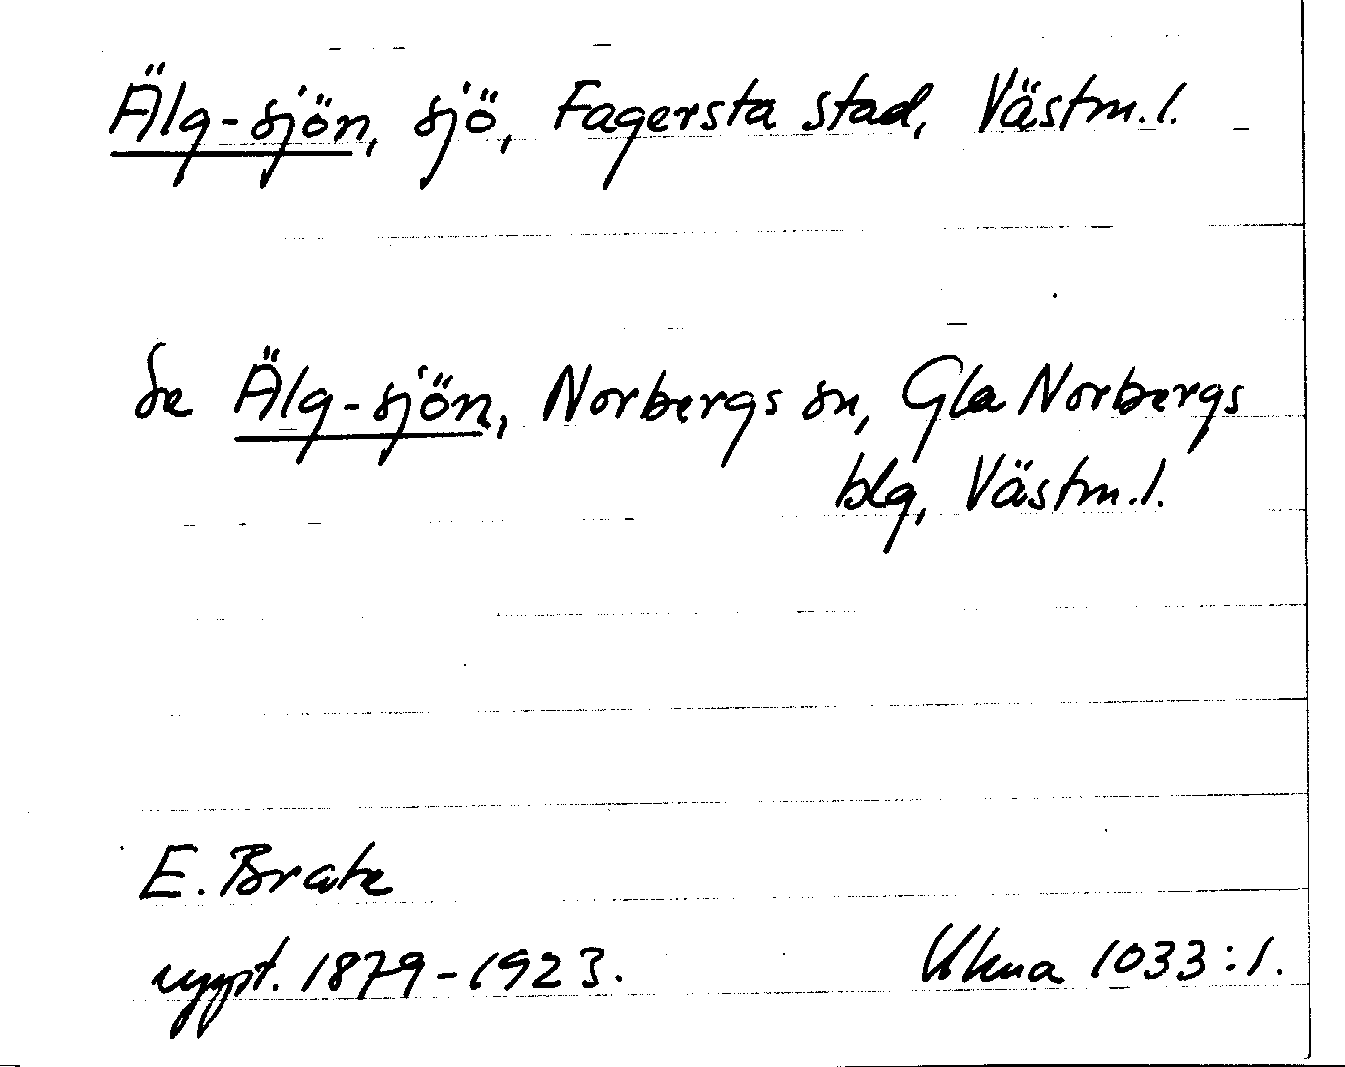 Älg-sjön, sjö, Fagersta stad, Västm.l.
Se Älg-sjön, Norbergs sn, Gla Norbergs
blg, Västm.l.
E. Brate
uppt. 1879-1923. Ukna 1033:1.